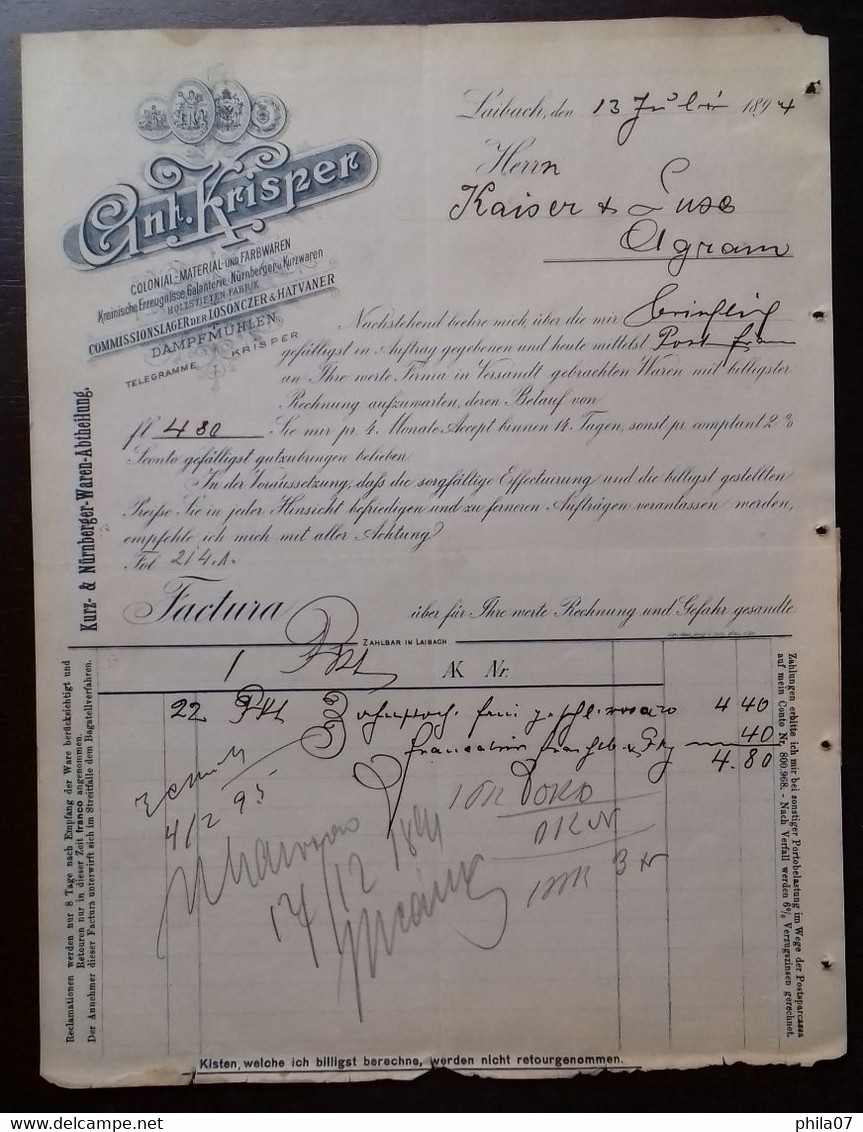 Ant. Krisper
COLONIAL-MATERIAL- UND FARBWAREN
Krainische Erzeugnisse, Galanterie, Nürnberger u. Kurzwaren
HOLZSTIFTEN FABRIK
COMMISSIONSLAGER DER LOSONCZER & HATVANER
DAMPFMÜHLEN
TELEGRAMME KRISPER
Laibach, den 13 Juli 1894
Herrn
Kaiser &
Agram
Nachstehend beehre mich, über die mir
gefälligst in Auftrag gegebenen und heute mittelst Post
an Ihre werte Firma in Versandt gebrachten Waren mit billigster
Rechnung aufzuwarten, deren Belauf von
fl 4 80 Sie mir pr. 4. Monate Accept binnen 14. Tagen, sonst pr. comptant 2%
Sconto gefälligst gutzubringen belieben.
In der Voraussetzung, daß die sorgfältige Effectuirung und die billigst gestellten
Preiße Sie in jeder Hinsicht befriedigen und zu ferneren Aufträgen veranlassen werden,
empfehle ich mich mit aller Achtung
Fol 214.
Kurz- & Nürnberger-Waren-Abtheilung.
Factura über für Ihre werte Rechnung und Gefahr gesandte
ZAHLBAR IN LAIBACH
1 Pkt AK Nr.
22 Pkt 4 40
40
4.80
4/2 95
17/12 1894
Reclamationen werden nur 8 Tage nach Empfang der Ware berücksichtigt und
Retouren nur in dieser Zeit franco angenommen.
Der Annehmer dieser Factura unterwirft sich im Streitfalle dem Bagatellverfahren.
Zahlungen erbitte ich mir bei sonstiger Portobelastung im Wege der Postsparcassa
auf mein Conto Nr. 800.968. - Nach Verfall werden 6% Verzugszinsen gerechnet.
Kisten, welche ich billigst berechne, werden nicht retourgenommen.
delcampe.net
phila07